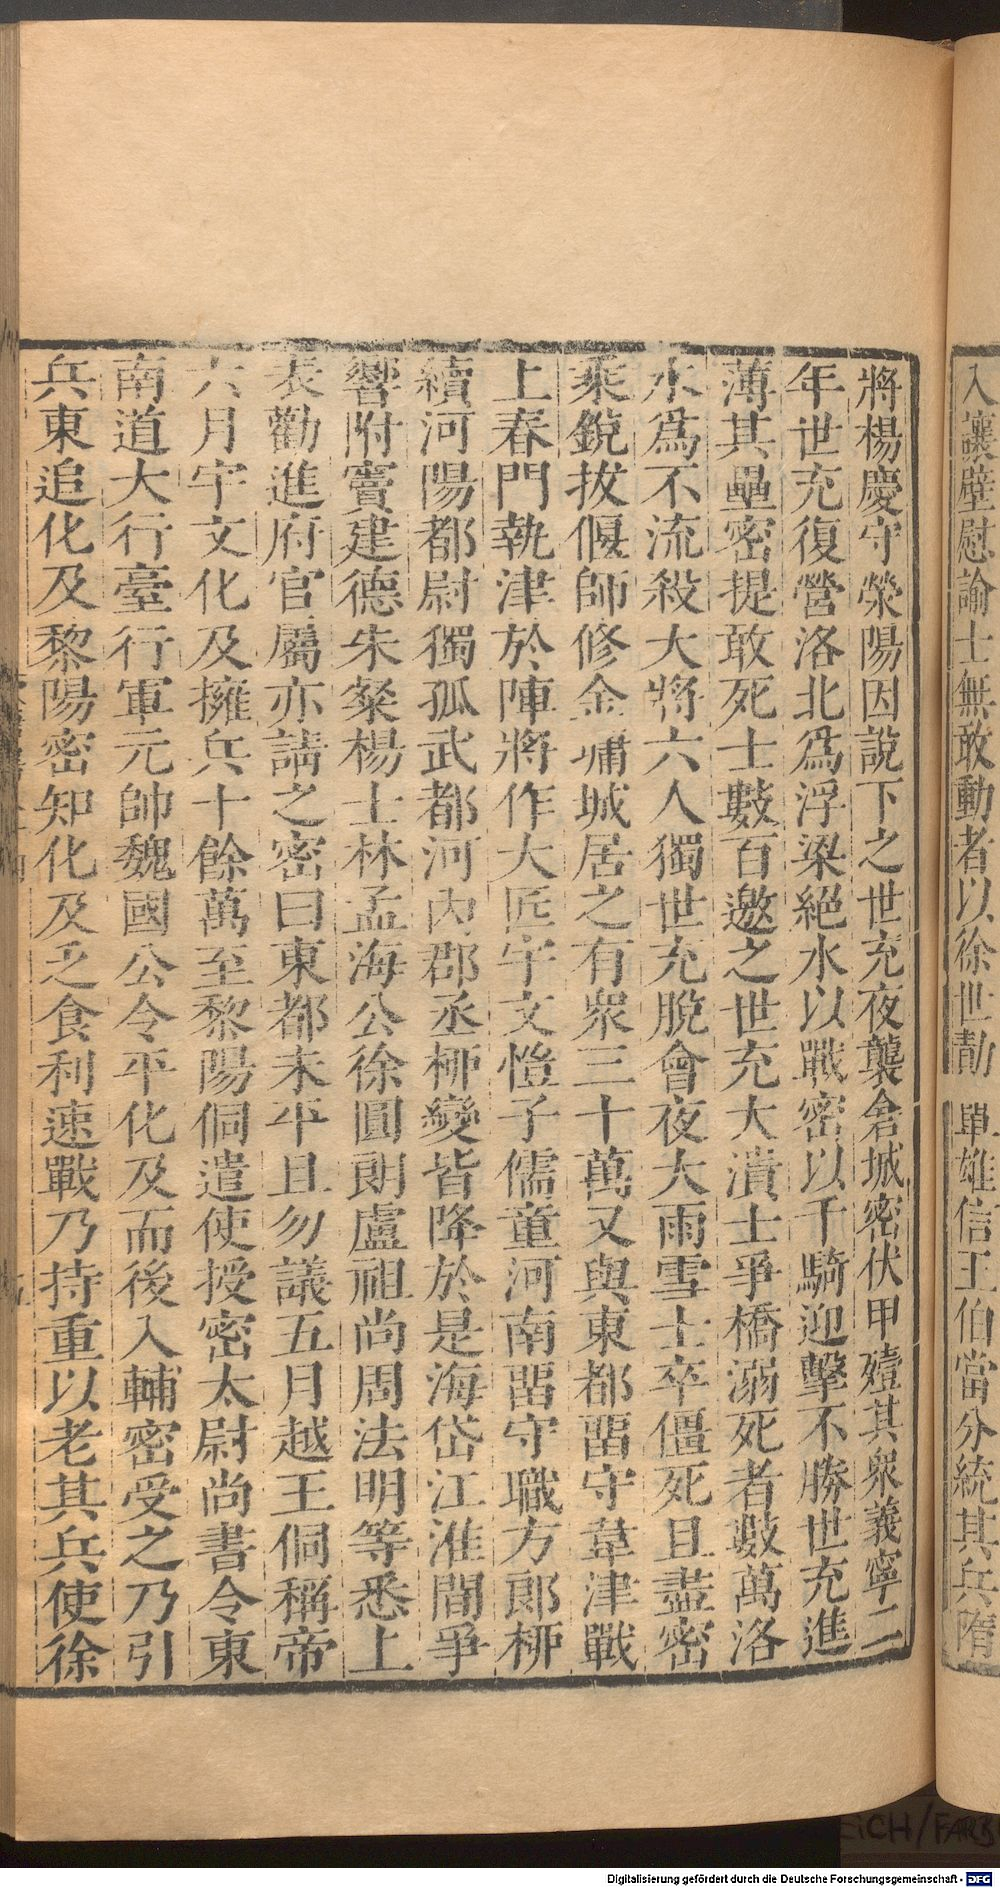 入讓壁慰諭士無敢動者以徐世勣單雄信王伯當分統其兵隋
將楊慶守滎陽因說下之世充夜襲倉城密伏甲殪其衆義寧二
年世充復營洛北爲浮梁絕水以戰密以千騎迎擊不勝世充進
薄其壘密提敢死士數百邀之世充大潰士爭橋溺死者數萬洛
水爲不流殺大將六人獨世充脫會夜大雨雪士卒僵死且盡密
乘銳拔偃師修金墉城居之有衆三十萬又與東都畱守韋津戰
上春門執津於陣將作大匠宇文愷子儒童河南畱守職方郎柳
續河陽都尉獨孤武都河內郡丞柳變皆降於是海岱江淮間爭
響附竇建德朱粲楊士林孟海公徐圓朗盧祖尚周法明等悉上
表勸進府官屬亦請之密曰東都未平且勿議五月越王侗稱帝
六月宇文化及擁兵十餘萬至黎陽侗遣使授密太尉尚書令東
南道大行臺行軍元帥魏國公令平化及而後入輔密受之乃引
兵東追化及黎陽密知化及乏食利速戰乃持重以老其兵使徐
Digitalisierung gefördert durch die Deutsche Forschungsgemeinschaft - DFG